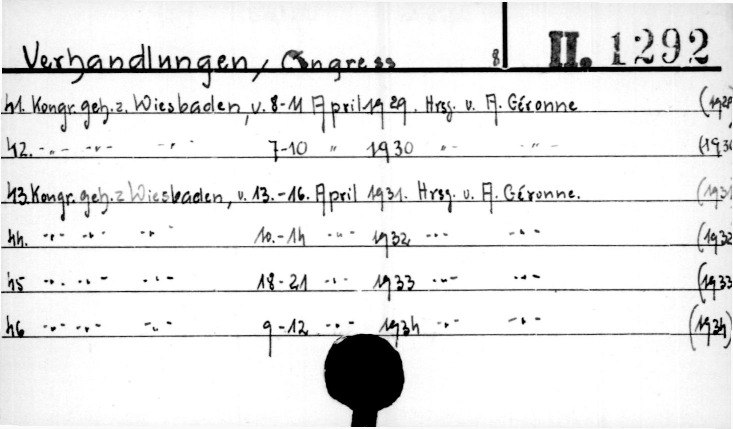 Verhandlungen, Congress 8 II. 1292
41. Kongr. geh. z. Wiesbaden, v. 8-11 April 1929. Hrsg. v. A. Géronne (1929
42. -„- -„- -„- 7-10 „ 1930 „- -„- (1930
43. Kongr. geh. z Wiesbaden, v. 13.-16. April 1931. Hrsg. v. A. Géronne. (1931
44. -„- -„- -„- 10.-14 -„- 1932 -„- -„- (1932
45 -„- -„- -„- 18-21 -„- 1933 -„- -„- (1933
46 -„- -„- -„- 9-12 -„- 1934 -„- -„- (1934)